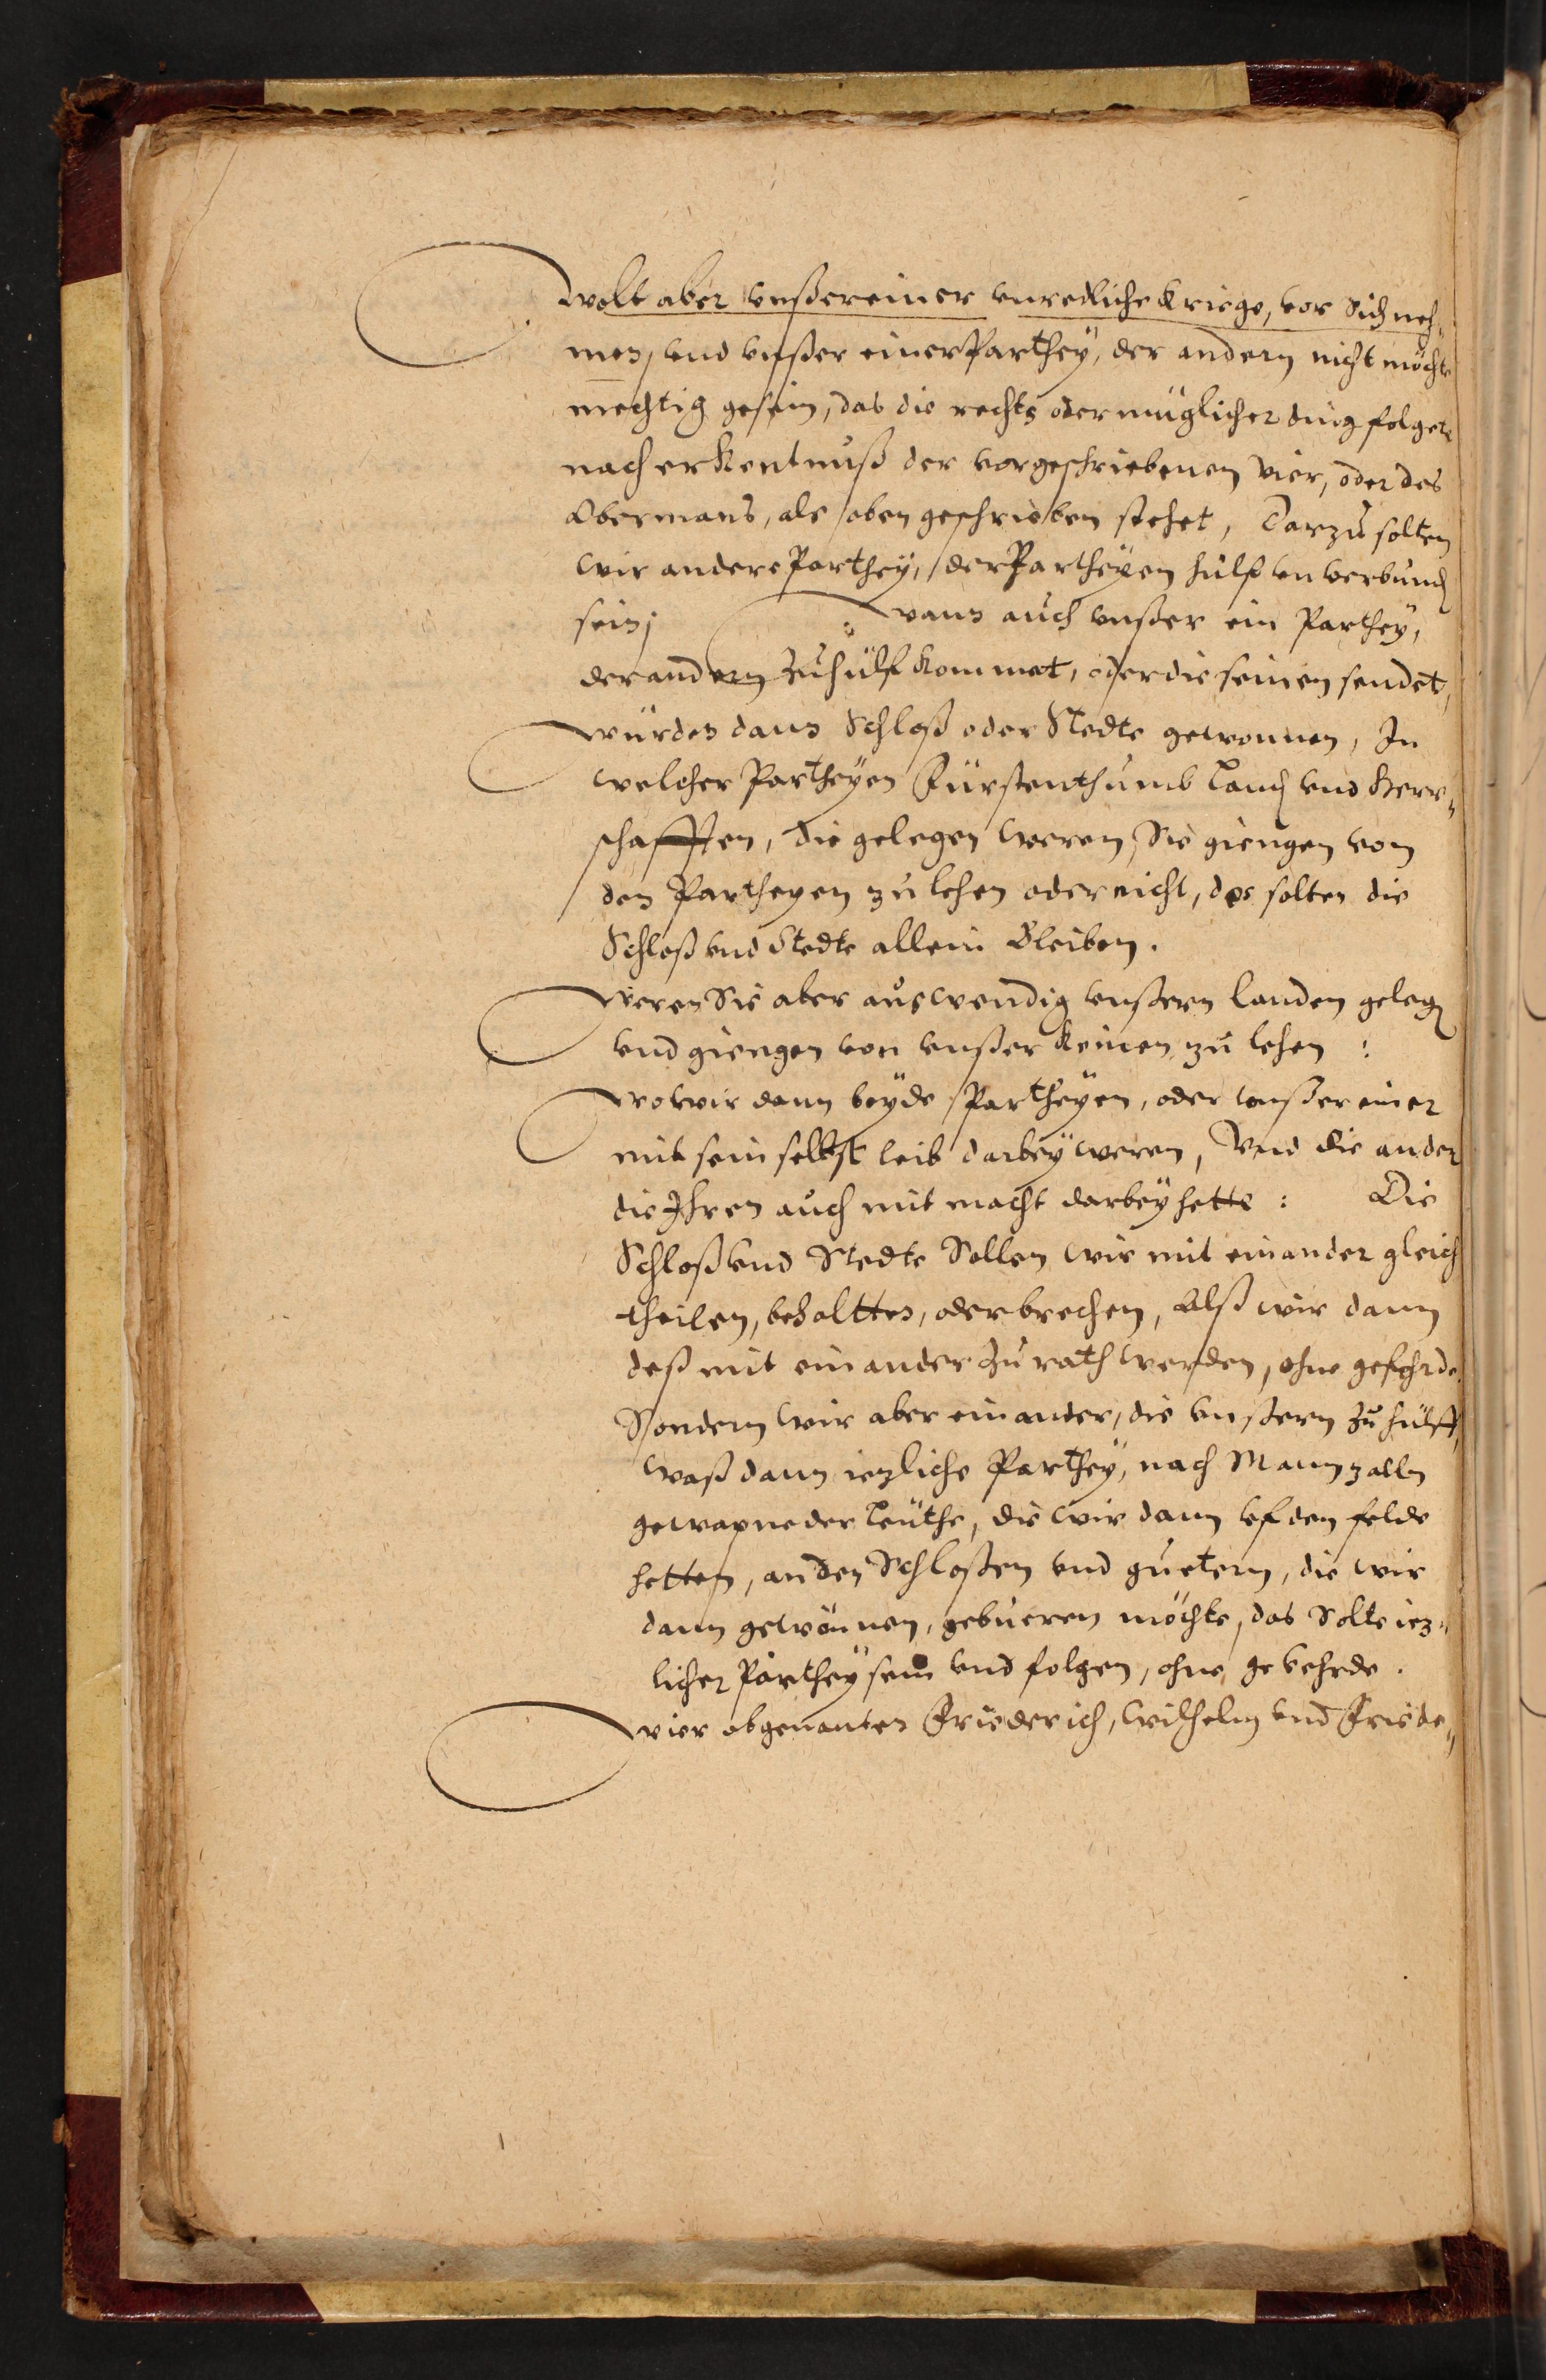 Wolt aber vnßer einer vnredliche Kriege, vor Sich neh„
men, vnd vnßer einer Parthey, der andern nicht möchte
mechtig gesein, das die rechts oder müglicher ding folgete
nach erkentnuß der vorgeschriebenen vier, oder des
Obermans, als oben geschrieben stehet, Darzu solten
wir andere Parthey, der Partheyen hülf vnverbund
sein; Wann auch vnßer ein Parthey,
der andern Zu hülf kommet, oder die seinen sendet,
würden dann Schloß oder Stedte gewonnen, In
welcher Partheyen Fürstenthumb Land vnd Herr„
schafften, die gelegen weren, Sie giengen von
den Partheyen zu lehen oder nicht, des solten die
Schloß vnd Stedte allein Bleiben.
Weren Sie aber auswendig vnßern landen geleg
vnd giengen von vnßer keinen zu lehen :
Wo wir dann beyde Partheyen, oder vnßer einer
mit sein selbst leib darbey weren, Vnd die ander
die Ihren auch mit macht darbey hette : Die
Schloß vnd Stedte Sollen wir mit einander gleich
theilen, behaltten, oder brechen, Alß wir dann
deß mit einander Zu rath werden, ohne gefehrde.
Sondern wir aber einander, die vnßern Zu hülff,
waß dann iezliche Parthey, nach Mannzalln
gewapneder Leuthe, die wir dann vf dem felde
hetten, an den Schloßen vnd guetern, die wir
dann gewönnen, gebueren möchte, das Solte iez„
licher Parthey sein vnd folgen, ohne gevehrde.
Wier obgenanten Friederich, Wilhelm vnd Friede„